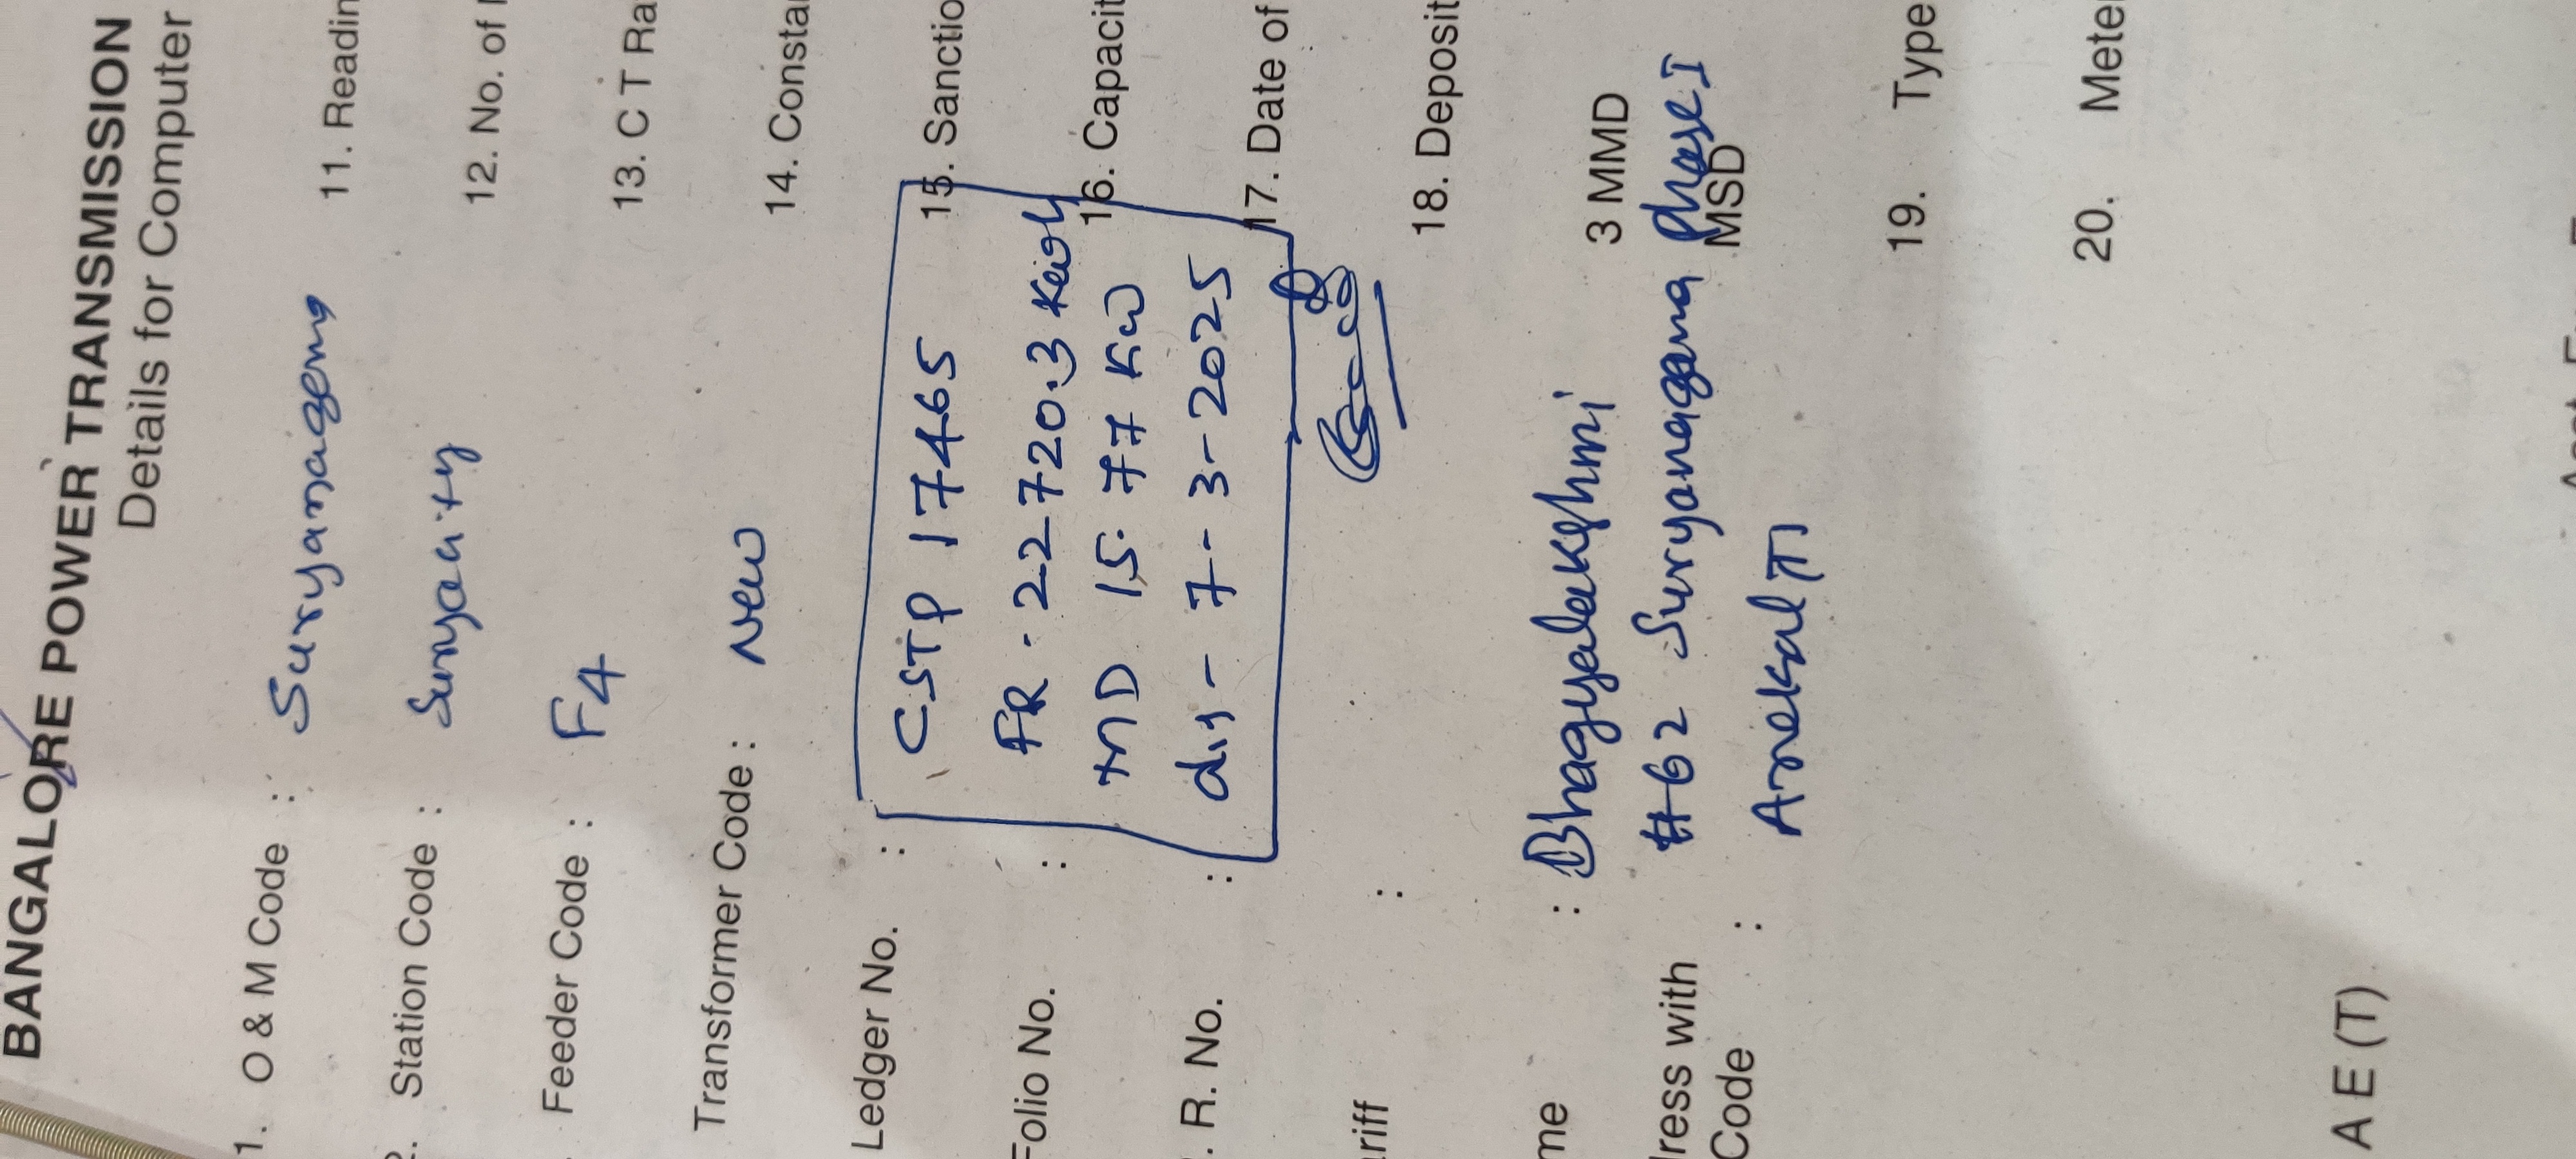 BANGALORE POWER TRANSMISSION
Details for Computer
1. O & M Code : Suryanagena
Station Code : Suryacity
Feeder Code : F4
Transformer Code : New
Ledger No. :
Folio No. :
R. No. :
CSTP 17465
FR - 22720.3 kwh
MD 15.77 KW
dis - 7-3-2025
riff :
me : Bhagyalakshmi
ress with
Code : #62 Suryanagena Phase I
Anekal TI
11. Readin
12. No. of
13. C T Ra
14. Consta
15. Sanctio
16. Capacit
17. Date of
18. Deposit
3 MMD
MSD
19. Type
20. Mete
A E (T)